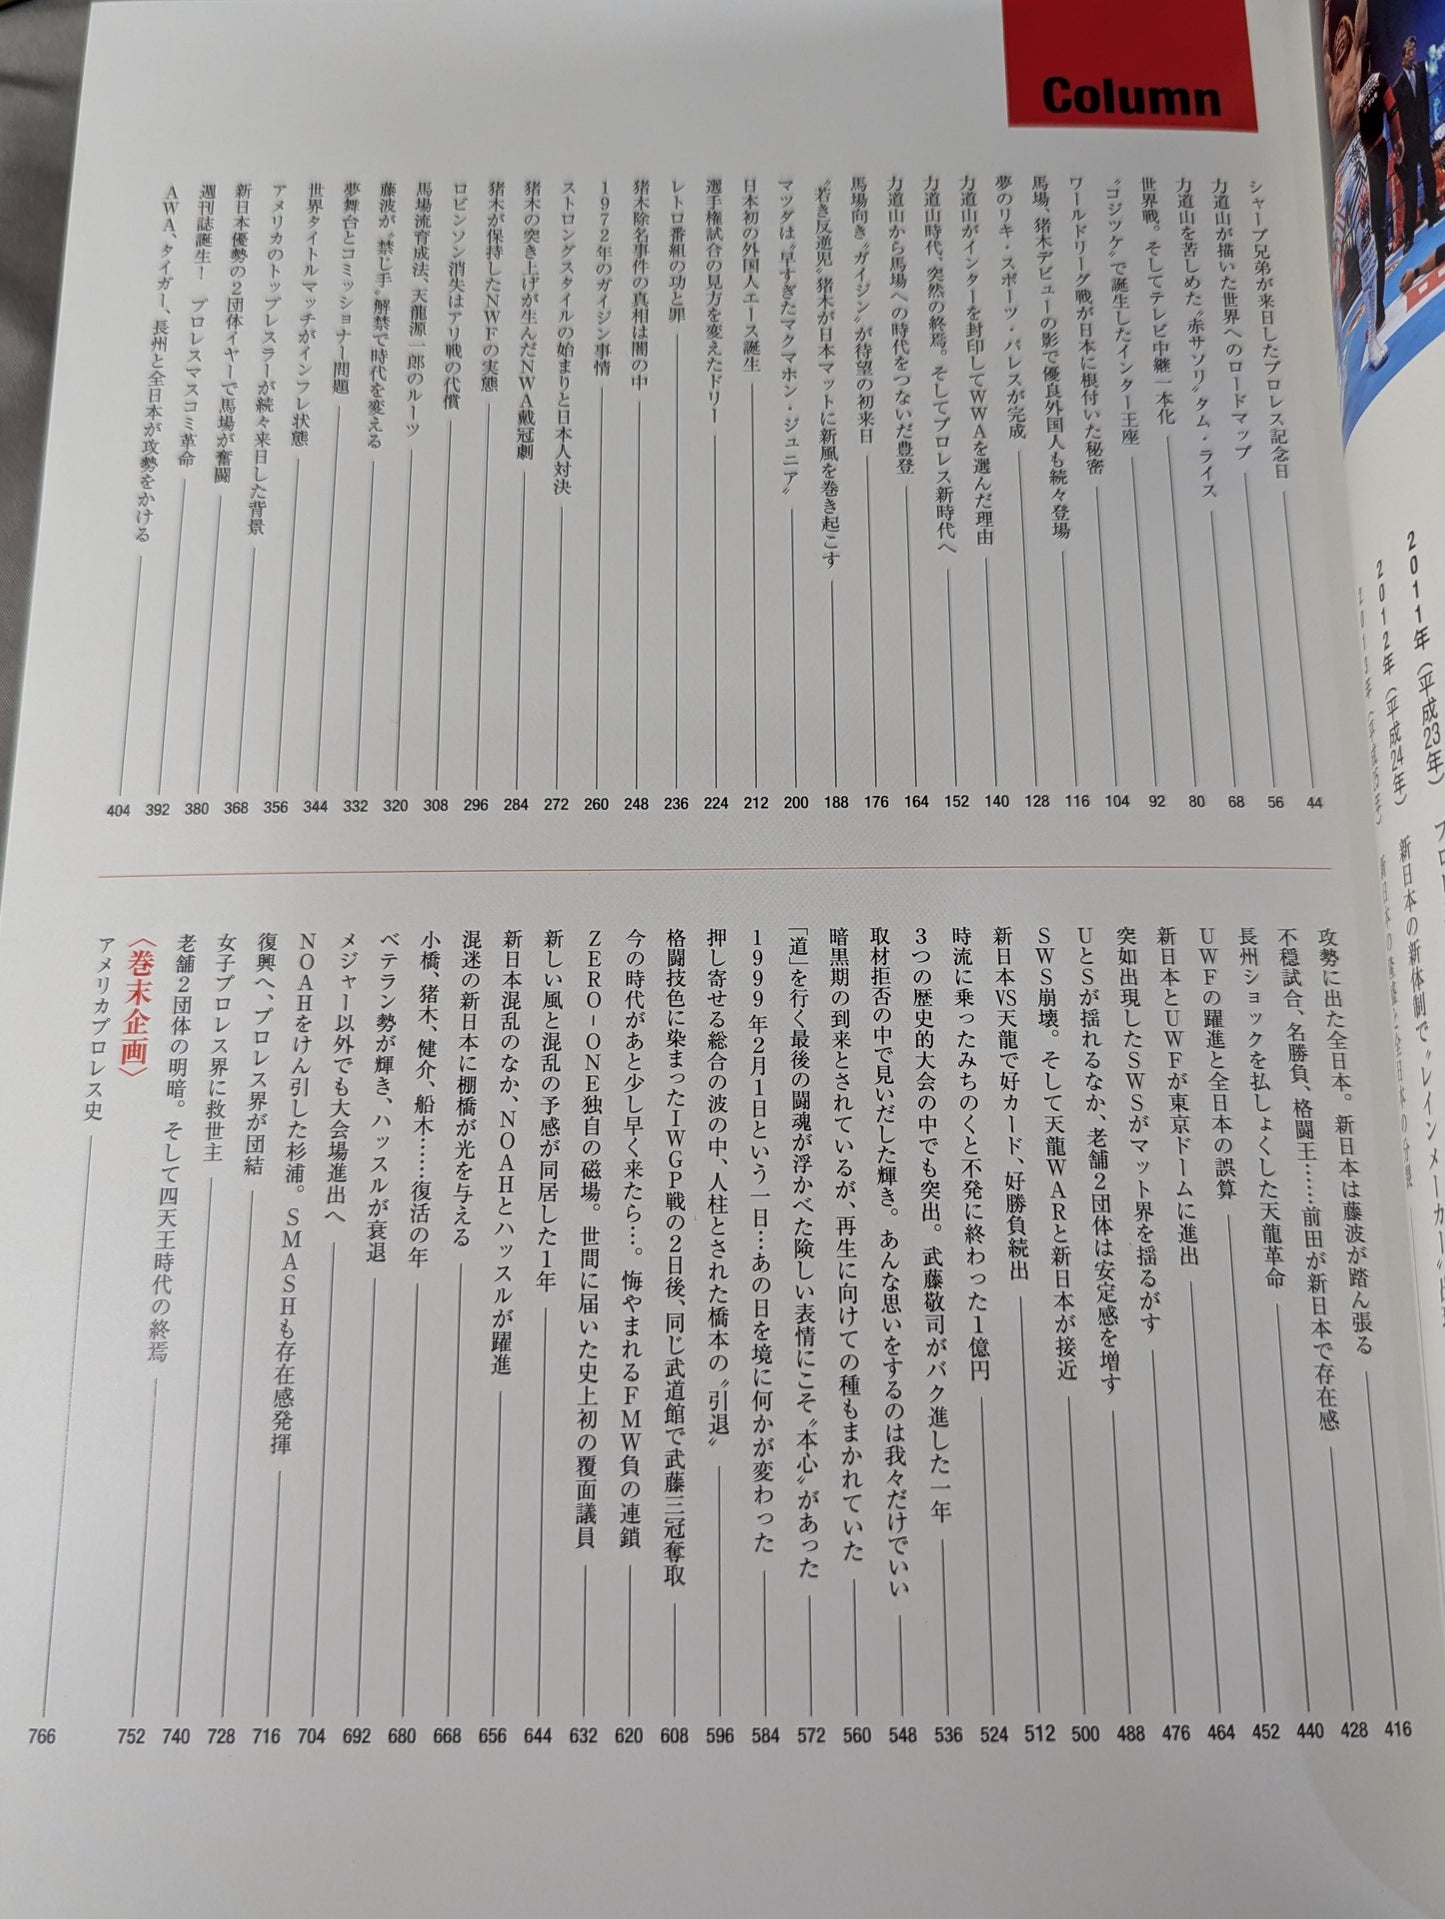 Column
シャープ兄弟が来日したプロレス記念日 44
力道山が描いた世界へのロードマップ 56
力道山を苦しめた〝赤サソリ〟タム・ライス 68
世界戦。そしてテレビ中継一本化 80
〝コジツケ〟で誕生したインター王座 92
ワールドリーグ戦が日本に根付いた秘密 104
馬場、猪木デビューの影で優良外国人も続々登場 116
夢のリキ・スポーツ・パレスが完成 128
力道山がインターを封印してWWAを選んだ理由 140
力道山時代、突然の終焉。そしてプロレス新時代へ 152
力道山から馬場への時代をつないだ豊登 164
馬場向き〝ガイジン〟が待望の初来日 176
〝若き反逆児〟猪木が日本マットに新風を巻き起こす 188
マツダは〝早すぎたマクマホン・ジュニア〟 200
日本初の外国人エース誕生 212
選手権試合の見方を変えたドリー 224
レトロ番組の功と罪 236
猪木除名事件の真相は闇の中 248
1972年のガイジン事情 260
ストロングスタイルの始まりと日本人対決 272
猪木の突き上げが生んだNWA戴冠劇 284
猪木が保持したNWFの実態 296
ロビンソン消失はアリ戦の代償 308
馬場流育成法、天龍源一郎のルーツ 320
藤波が〝禁じ手〟解禁で時代を変える 332
夢舞台とコミッショナー問題 344
世界タイトルマッチがインフレ状態 356
アメリカのトップレスラーが続々来日した背景 368
新日本優勢の2団体イヤーで馬場が奮闘 380
週刊誌誕生! プロレスマスコミ革命 392
AWA、タイガー、長州と全日本が攻勢をかける 404
攻勢に出た全日本。新日本は藤波が踏ん張る 416
不穏試合、名勝負、格闘王……前田が新日本で存在感 428
長州ショックを払しょくした天龍革命 440
UWFの躍進と全日本の誤算 452
新日本とUWFが東京ドームに進出 464
突如出現したSWSがマット界を揺るがす 476
UとSが揺れるなか、老舗2団体は安定感を増す 488
SWS崩壊。そして天龍WARと新日本が接近 500
新日本VS天龍で好カード、好勝負続出 512
時流に乗ったみちのくと不発に終わった1億円 524
3つの歴史的大会の中でも突出。武藤敬司がバク進した一年 536
取材拒否の中で見いだした輝き。あんな思いをするのは我々だけでいい 548
暗黒期の到来とされているが、再生に向けての種もまかれていた 560
「道」を行く最後の闘魂が浮かべた険しい表情にこそ〝本心〟があった 572
1999年2月1日という一日…あの日を境に何かが変わった 584
押し寄せる総合の波の中、人柱とされた橋本の〝引退〟 596
格闘技色に染まったIWGP戦の2日後、同じ武道館で武藤三冠奪取 608
今の時代があと少し早く来たら…。悔やまれるFMW負の連鎖 620
ZERO-ONE独自の磁場。世間に届いた史上初の覆面議員 632
新しい風と混乱の予感が同居した1年 644
新日本混乱のなか、NOAHとハッスルが躍進 656
混迷の新日本に棚橋が光を与える 668
小橋、猪木、健介、船木……復活の年 680
ベテラン勢が輝き、ハッスルが衰退 692
メジャー以外でも大会場進出へ 704
NOAHをけん引した杉浦。SMASHも存在感発揮 716
復興へ、プロレス界が団結 728
女子プロレス界に救世主 740
老舗2団体の明暗。そして四天王時代の終焉 752
〈巻末企画〉
アメリカプロレス史 766
2011年（平成23年）
2012年（平成24年） 新日本の新体制で〝レインメーカー〟